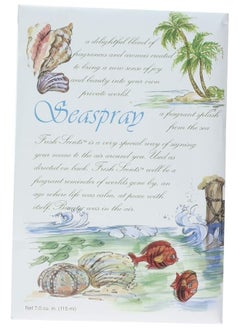 a delightful blend of
fragrances and aromas created
to bring a new sense of joy
and beauty into your own
private world.
Seaspray
a fragrant splash
from the sea
Fresh Scents™ is a very special way of signing
your name to the air around you. Used as
directed on back, Fresh Scents™ will be a
fragrant reminder of worlds gone by, an
age where life was calm, at peace with
itself. Beauty was in the air.
Net 7.0 cu. in. (115 ml)